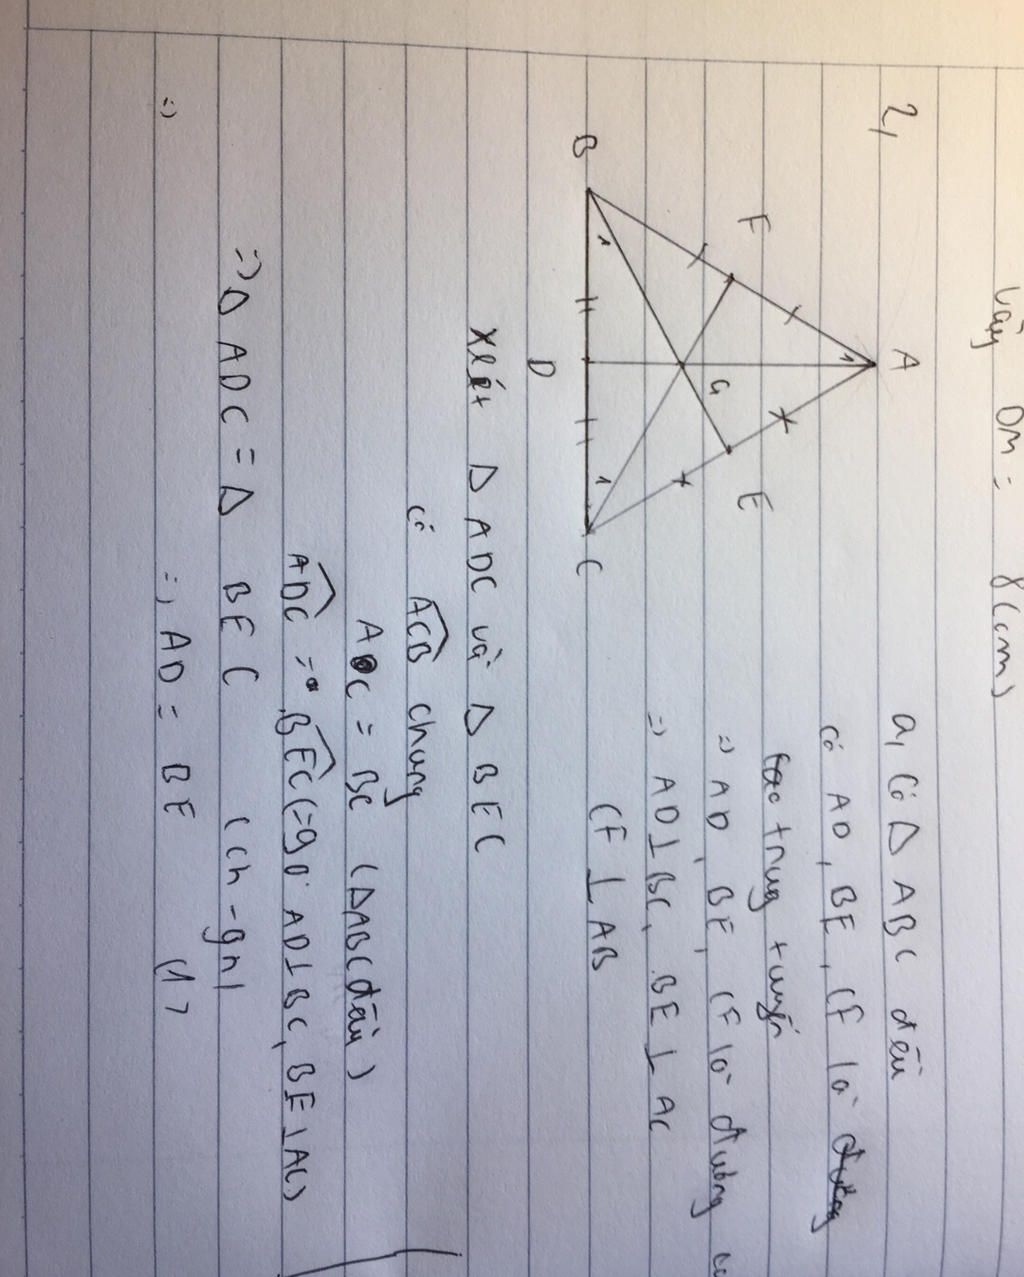 Vậy DM = 8(cm)
2,
a, Có Δ ABC đều
có AD, BE, CF là đường
trung tuyến
=) AD, BE, CF là đường
=) AD ⊥ BC, BE ⊥ AC
CF ⊥ AB
A
F
E
G
B
D
C
1
1
1
Xét Δ ADC và Δ BEC
có ACB chung
AC = BC (ΔABC đều)
ADC = BEC (=90° AD⊥BC, BE⊥AC)
=) Δ ADC = Δ BEC (ch-gn)
=) AD = BE (1)
=)